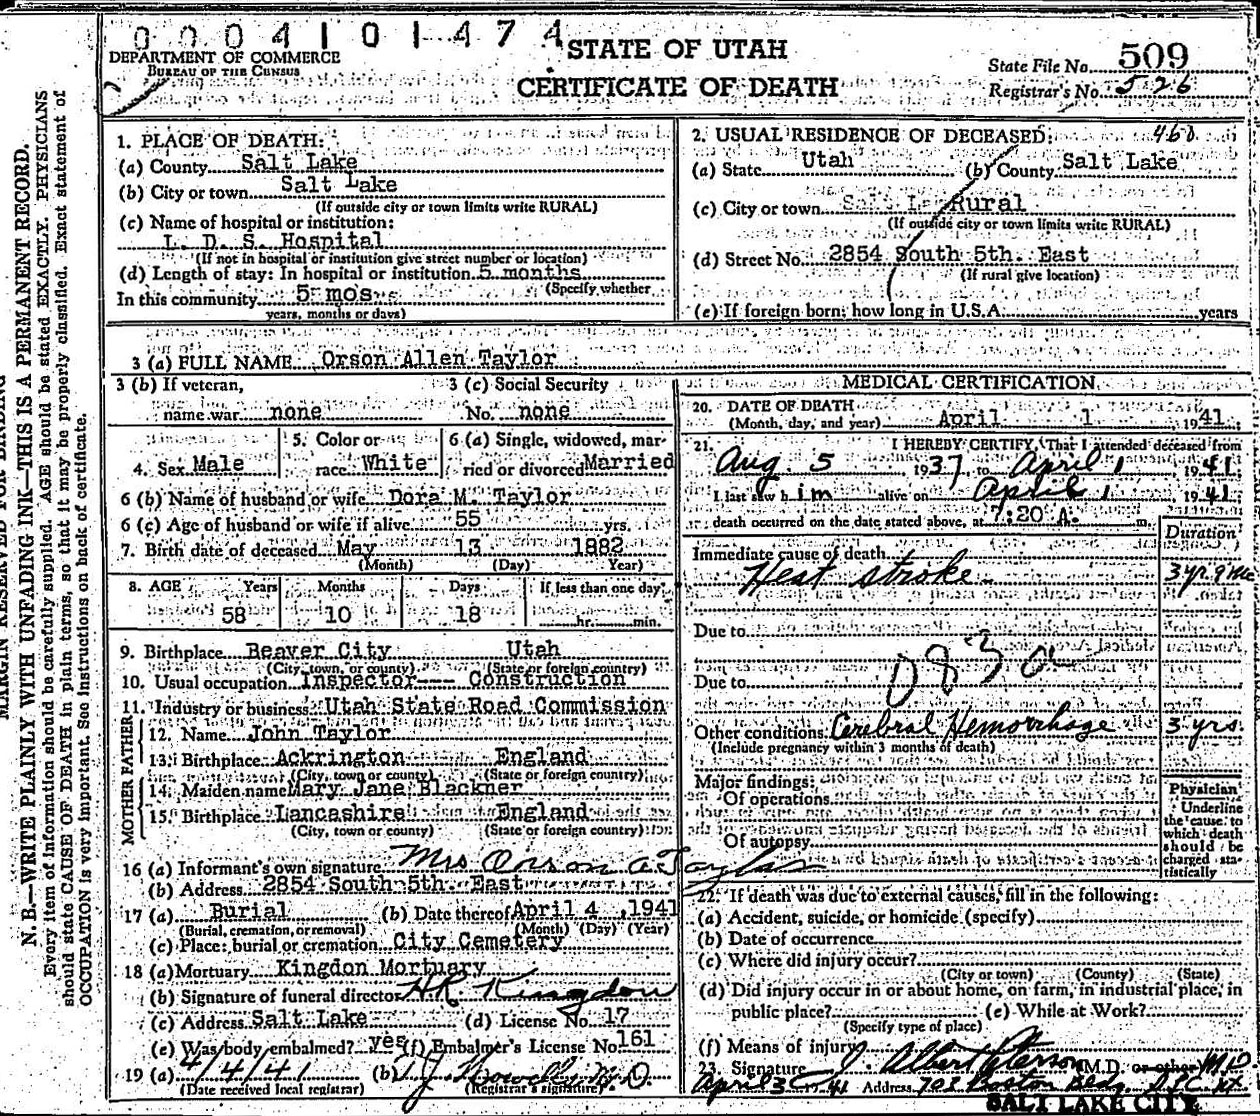 0004101474
DEPARTMENT OF COMMERCE
BUREAU OF THE CENSUS
STATE OF UTAH
CERTIFICATE OF DEATH
State File No. 509
Registrar's No. 526
MARGIN RESERVED FOR BINDING
N. B.—WRITE PLAINLY WITH UNFADING INK—THIS IS A PERMANENT RECORD.
Every item of information should be carefully supplied. AGE should be stated EXACTLY. PHYSICIANS
should state CAUSE OF DEATH in plain terms, so that it may be properly classified. Exact statement of
OCCUPATION is very important. See Instructions on back of certificate.
1. PLACE OF DEATH:
(a) County Salt Lake
(b) City or town Salt Lake
(If outside city or town limits write RURAL)
(c) Name of hospital or institution:
L. D. S. Hospital
(If not in hospital or institution give street number or location)
(d) Length of stay: In hospital or institution 5 months
(Specify whether
In this community 5 mos
years, months or days)
2. USUAL RESIDENCE OF DECEASED: 460
(a) State Utah (b) County Salt Lake
(c) City or town Rural
(If outside city or town limits write RURAL)
(d) Street No. 2854 South 5th. East
(If rural give location)
(e) If foreign born, how long in U.S.A. years
3 (a) FULL NAME Orson Allen Taylor
3 (b) If veteran, name war none
3 (c) Social Security No. none
4. Sex Male
5. Color or race White
6 (a) Single, widowed, married or divorced Married
6 (b) Name of husband or wife Dora M. Taylor
6 (c) Age of husband or wife if alive 55 yrs.
7. Birth date of deceased May 13 1882
(Month) (Day) Year)
8. AGE Years Months Days If less than one day
58 10 18 hr. min.
9. Birthplace Beaver City Utah
(City, town, or county) (State or foreign country)
10. Usual occupation Inspector--- Construction
11. Industry or business Utah State Road Commission
FATHER
12. Name John Taylor
13. Birthplace Ackrington England
(City, town or county) (State or foreign country)
MOTHER
14. Maiden name Mary Jane Blackner
15. Birthplace Lancashire England
(City, town or county) (State or foreign country)
16 (a) Informant's own signature Mrs Orson A Taylor
(b) Address 2854 South 5th. East
17 (a) Burial (b) Date thereof April 4, 1941
(Burial, cremation, or removal) (Month) (Day) (Year)
(c) Place: burial or cremation City Cemetery
18 (a) Mortuary Kingdon Mortuary
(b) Signature of funeral director H R Kingdon
(c) Address Salt Lake (d) License No. 17
(e) Was body embalmed? yes (f) Embalmer's License No. 161
19 (a) 4/4/41 (b) M.D.
(Date received local registrar) (Registrar's signature)
MEDICAL CERTIFICATION
20. DATE OF DEATH
(Month, day, and year) April 1 1941
21. I HEREBY CERTIFY, That I attended deceased from
Aug. 5 1937, to April 1 1941
I last saw him alive on April 1 1941
death occurred on the date stated above, at 7:20 A. m.
Duration
Immediate cause of death
Heat stroke 3 yr. 9 mo
Due to
083a
Due to
Other conditions Cerebral Hemorrhage 3 yrs.
(Include pregnancy within 3 months of death)
Major findings:
Of operations
Of autopsy
Physician
Underline the cause to which death should be charged statistically
22. If death was due to external causes, fill in the following:
(a) Accident, suicide, or homicide (specify)
(b) Date of occurrence
(c) Where did injury occur?
(City or town) (County) (State)
(d) Did injury occur in or about home, on farm, in industrial place, in
public place? (e) While at Work?
(Specify type of place)
(f) Means of injury
23. Signature J. Albert Peterson (M.D. or other) MD
April 3 41 Address 702 Boston Bldg. SLC
SALT LAKE CITY